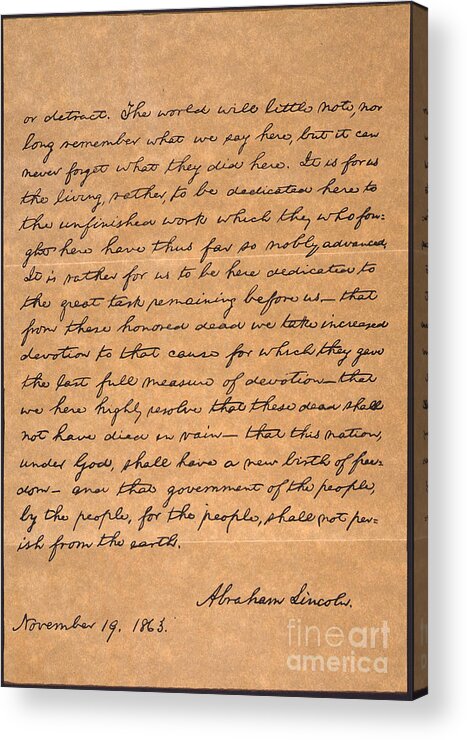 or detract. The world will little note, nor
long remember what we say here, but it can
never forget what they did here. It is for us
the living, rather, to be dedicated here to
the unfinished work which they who fou-
ght here have thus far so nobly advanced.
It is rather for us to be here dedicated to
the great task remaining before us— that
from these honored dead we take increased
devotion to that cause for which they gave
the last full measure of devotion— that
we here highly resolve that these dead shall
not have died in vain— that this nation,
under God, shall have a new birth of free-
dom— and that government of the people,
by the people, for the people, shall not per-
ish from the earth.
Abraham Lincoln.
November 19, 1863.
fine art
america